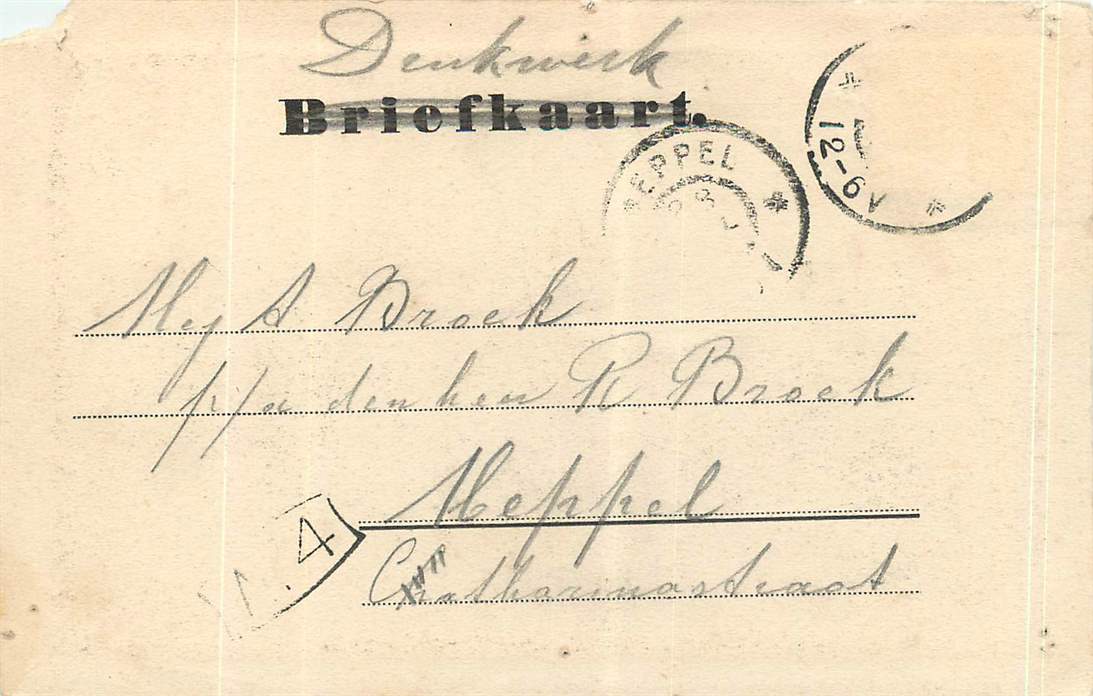 Denkwerk
Briefkaart.
MEPPEL
12-6V
Mej A Broek
p/a den heer R Broek
Meppel
Catharinastraat
4